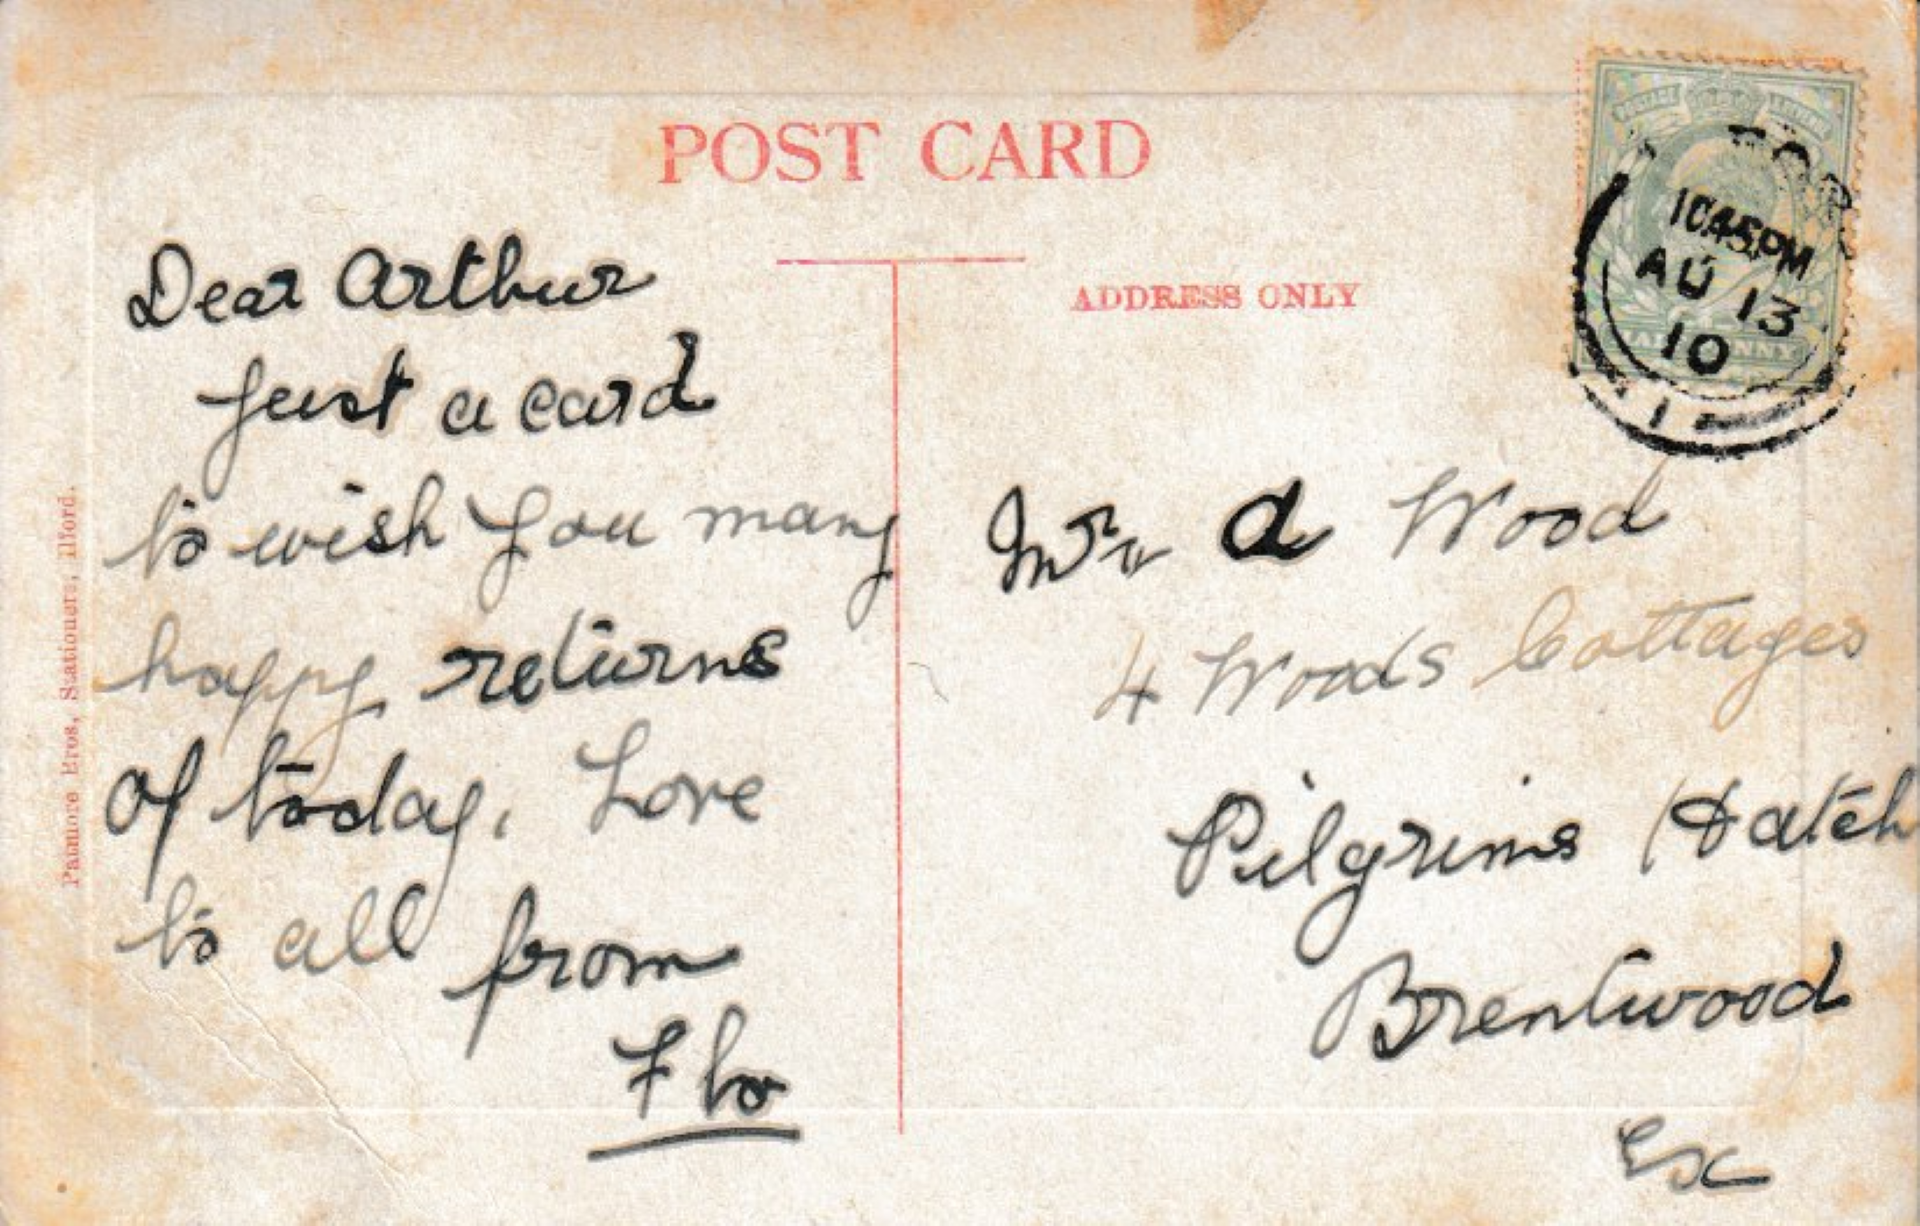 POST CARD
Dear Arthur
Just a card
to wish you many
happy returns
of today. Love
to all from
Flo
ADDRESS ONLY
Mr A Wood
4 Woods Cottages
Pilgrims Hatch
Brentwood
Ex
10.45PM
AU 13
10
1
POSTAGE
HALFPENNY
Palmore Bros, Stationers, Ilford.